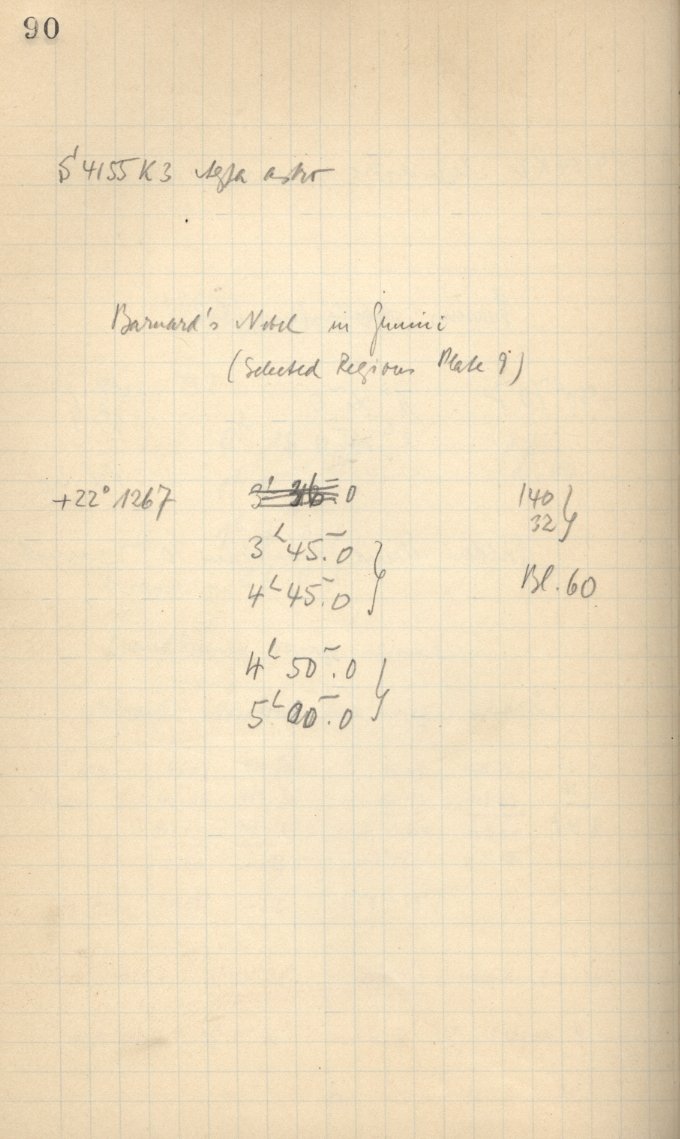 90
S 4155 K3 Agfa astro
Barnard's Nebel in Gemini
(Selected Regions Plate 9)
+22° 1267 140
32
3ʰ 45.ᵐ0
4ʰ 45.ᵐ0 Bl. 60
4ʰ 50.ᵐ0
5ʰ 00.ᵐ0